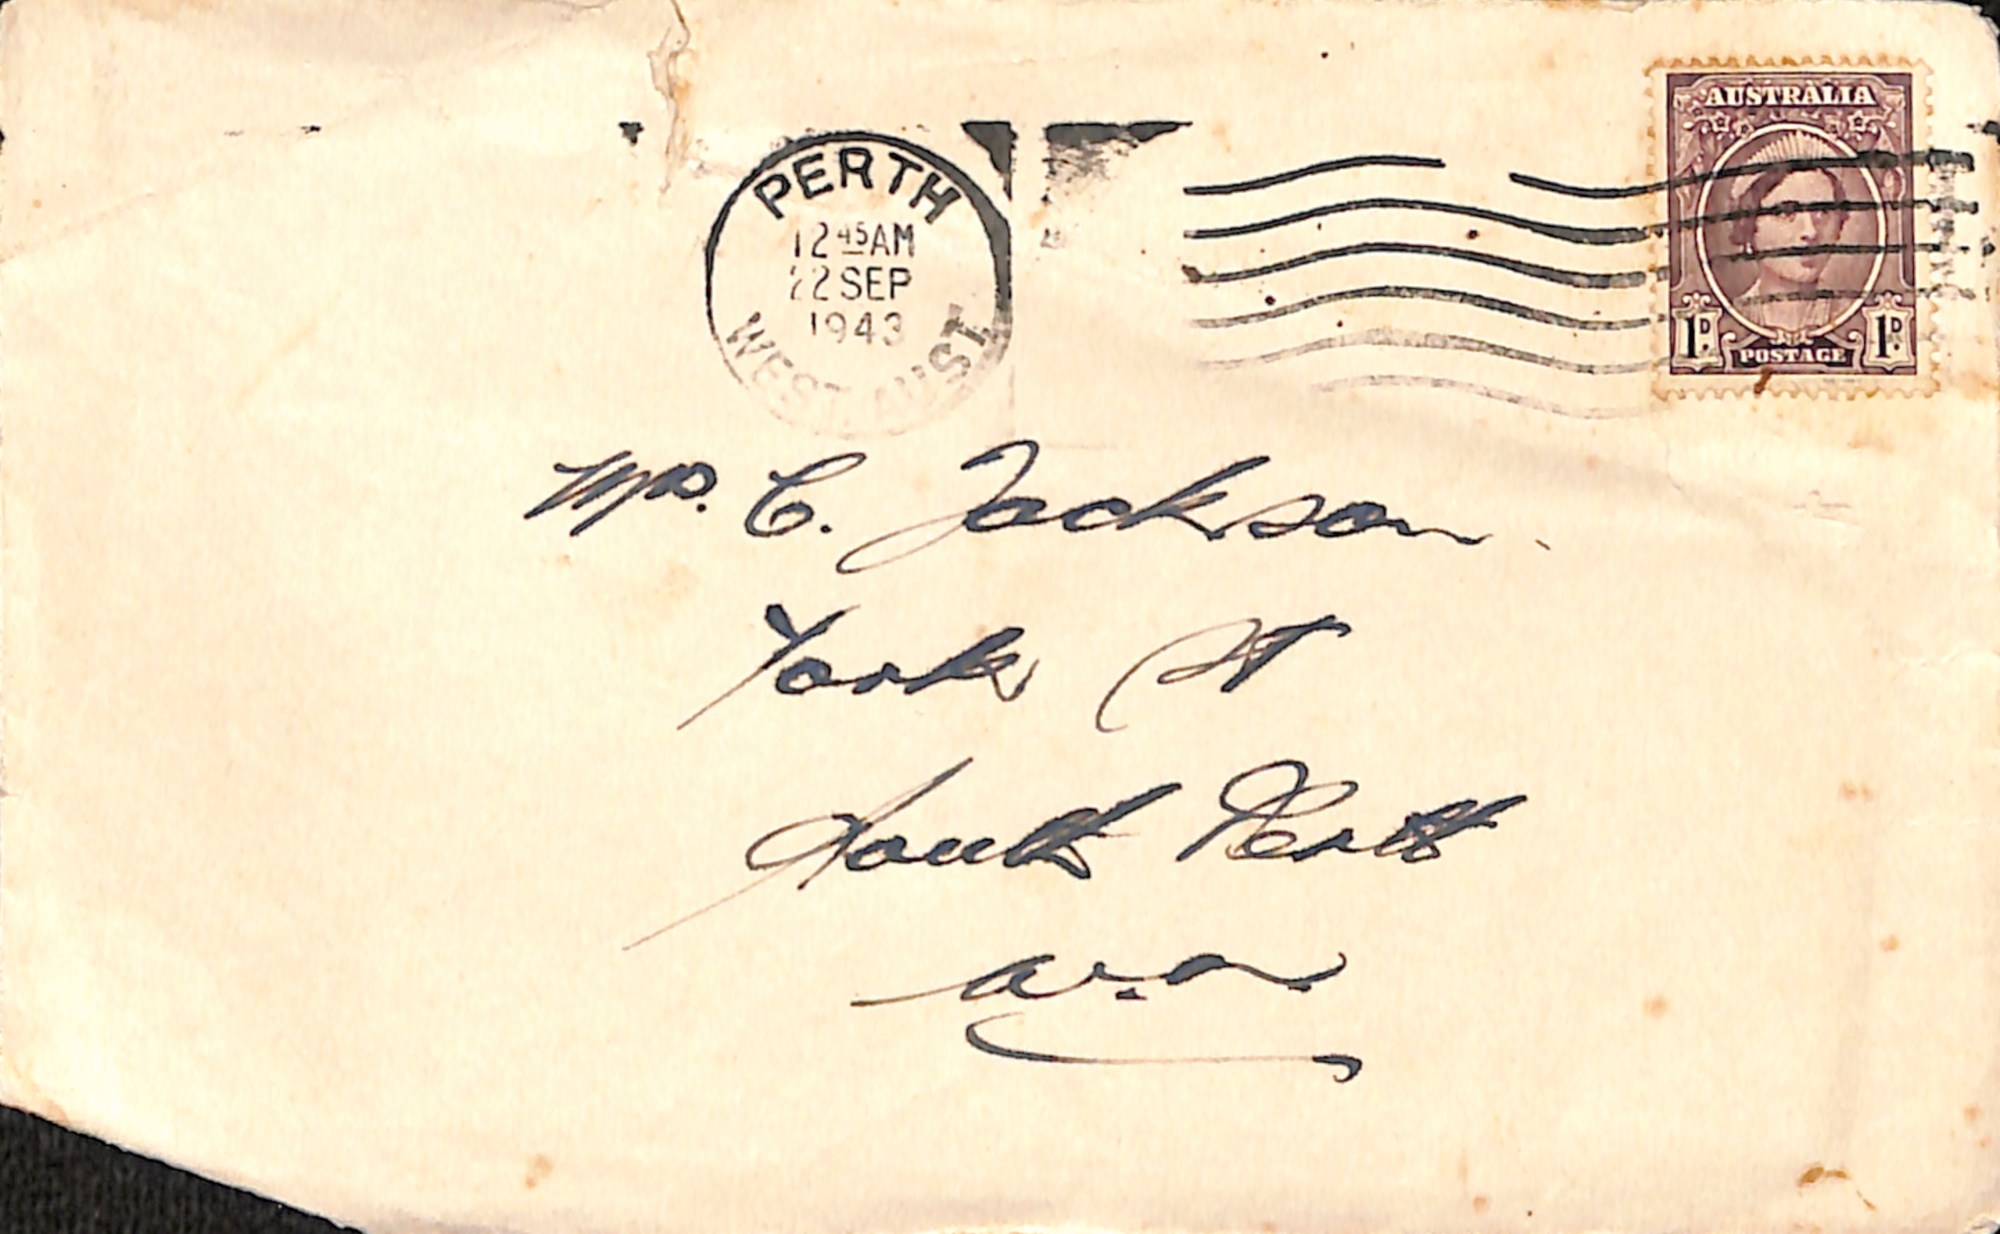 PERTH
12 45 AM
22 SEP
1943
WEST. AUST.
AUSTRALIA
1D. POSTAGE 1D.
Mrs. C. Jackson.
York St
South Perth
W.A.